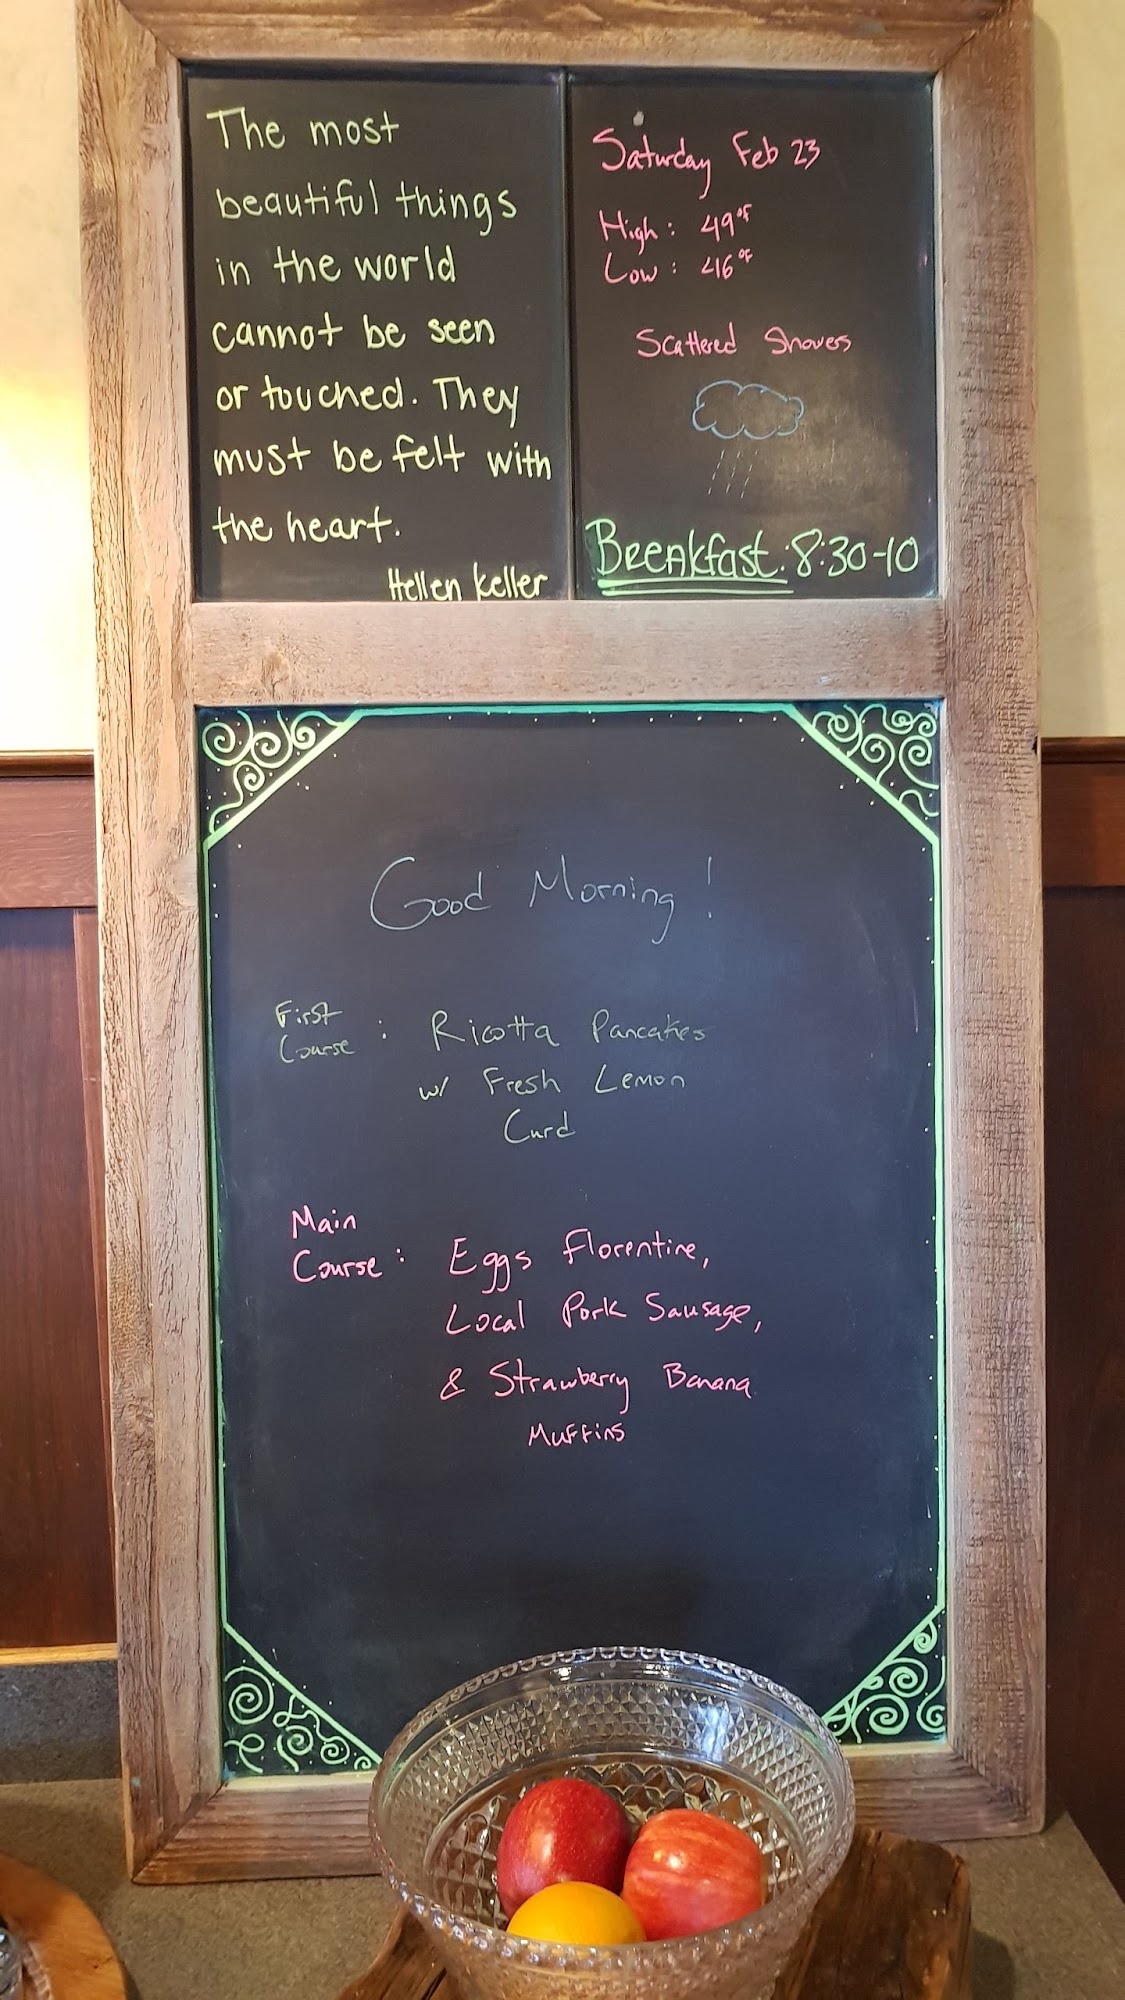 The most
beautiful things
in the world
cannot be seen
or touched. They
must be felt with
the heart.
Hellen Keller
Saturday Feb 23
High: 49°F
Low: 46°F
Scattered Showers
Breakfast: 8:30-10
Good Morning!
First
Course : Ricotta Pancakes
w/ Fresh Lemon
Curd
Main
Course : Eggs Florentine,
Local Pork Sausage,
& Strawberry Banana
Muffins